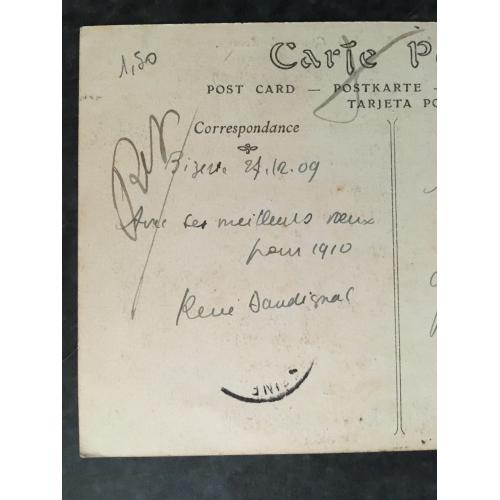 1,50
Carte P
POST CARD — POSTKARTE —
TARJETA PO
Correspondance
Bizerte 27.12.09
Avec ses meilleurs vœux
pour 1910
René
INE